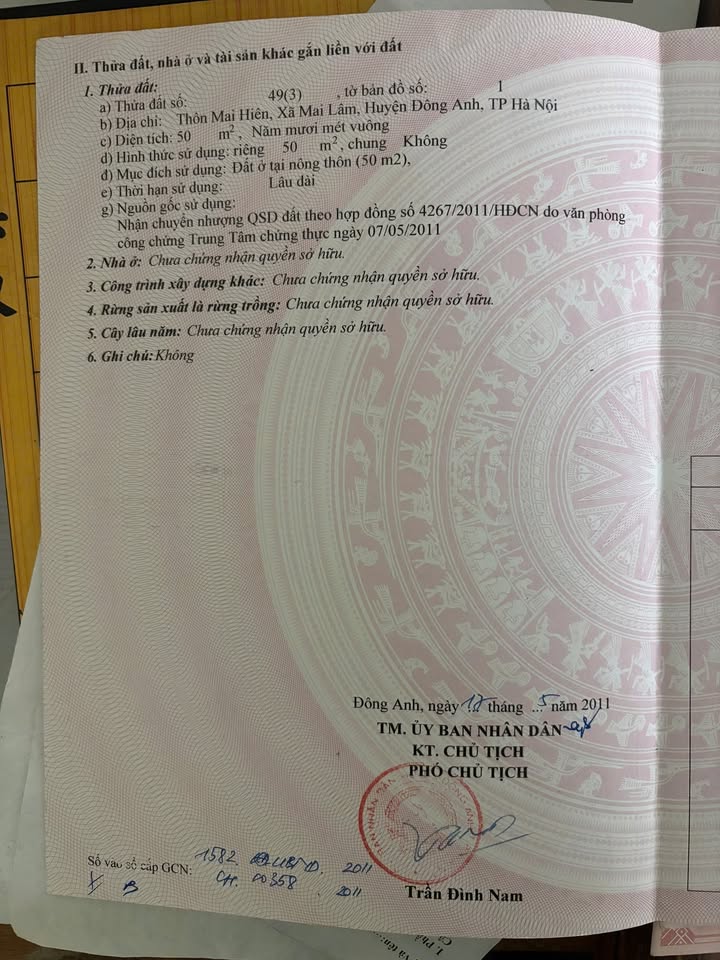 II. Thửa đất, nhà ở và tài sản khác gắn liền với đất
1. Thửa đất:
a) Thửa đất số: 49(3) , tờ bản đồ số: 1
b) Địa chỉ: Thôn Mai Hiên, Xã Mai Lâm, Huyện Đông Anh, TP Hà Nội
c) Diện tích: 50 m², Năm mươi mét vuông
d) Hình thức sử dụng: riêng 50 m², chung Không
đ) Mục đích sử dụng: Đất ở tại nông thôn (50 m2),
e) Thời hạn sử dụng: Lâu dài
g) Nguồn gốc sử dụng:
Nhận chuyển nhượng QSD đất theo hợp đồng số 4267/2011/HĐCN do văn phòng
công chứng Trung Tâm chứng thực ngày 07/05/2011
2. Nhà ở: Chưa chứng nhận quyền sở hữu.
3. Công trình xây dựng khác: Chưa chứng nhận quyền sở hữu.
4. Rừng sản xuất là rừng trồng: Chưa chứng nhận quyền sở hữu.
5. Cây lâu năm: Chưa chứng nhận quyền sở hữu.
6. Ghi chú: Không
Đông Anh, ngày 17 tháng ..5 năm 2011
TM. ỦY BAN NHÂN DÂN
KT. CHỦ TỊCH
PHÓ CHỦ TỊCH
Trần Đình Nam
Số vào sổ cấp GCN: 1582. 2011
CH. 00358 . 2011